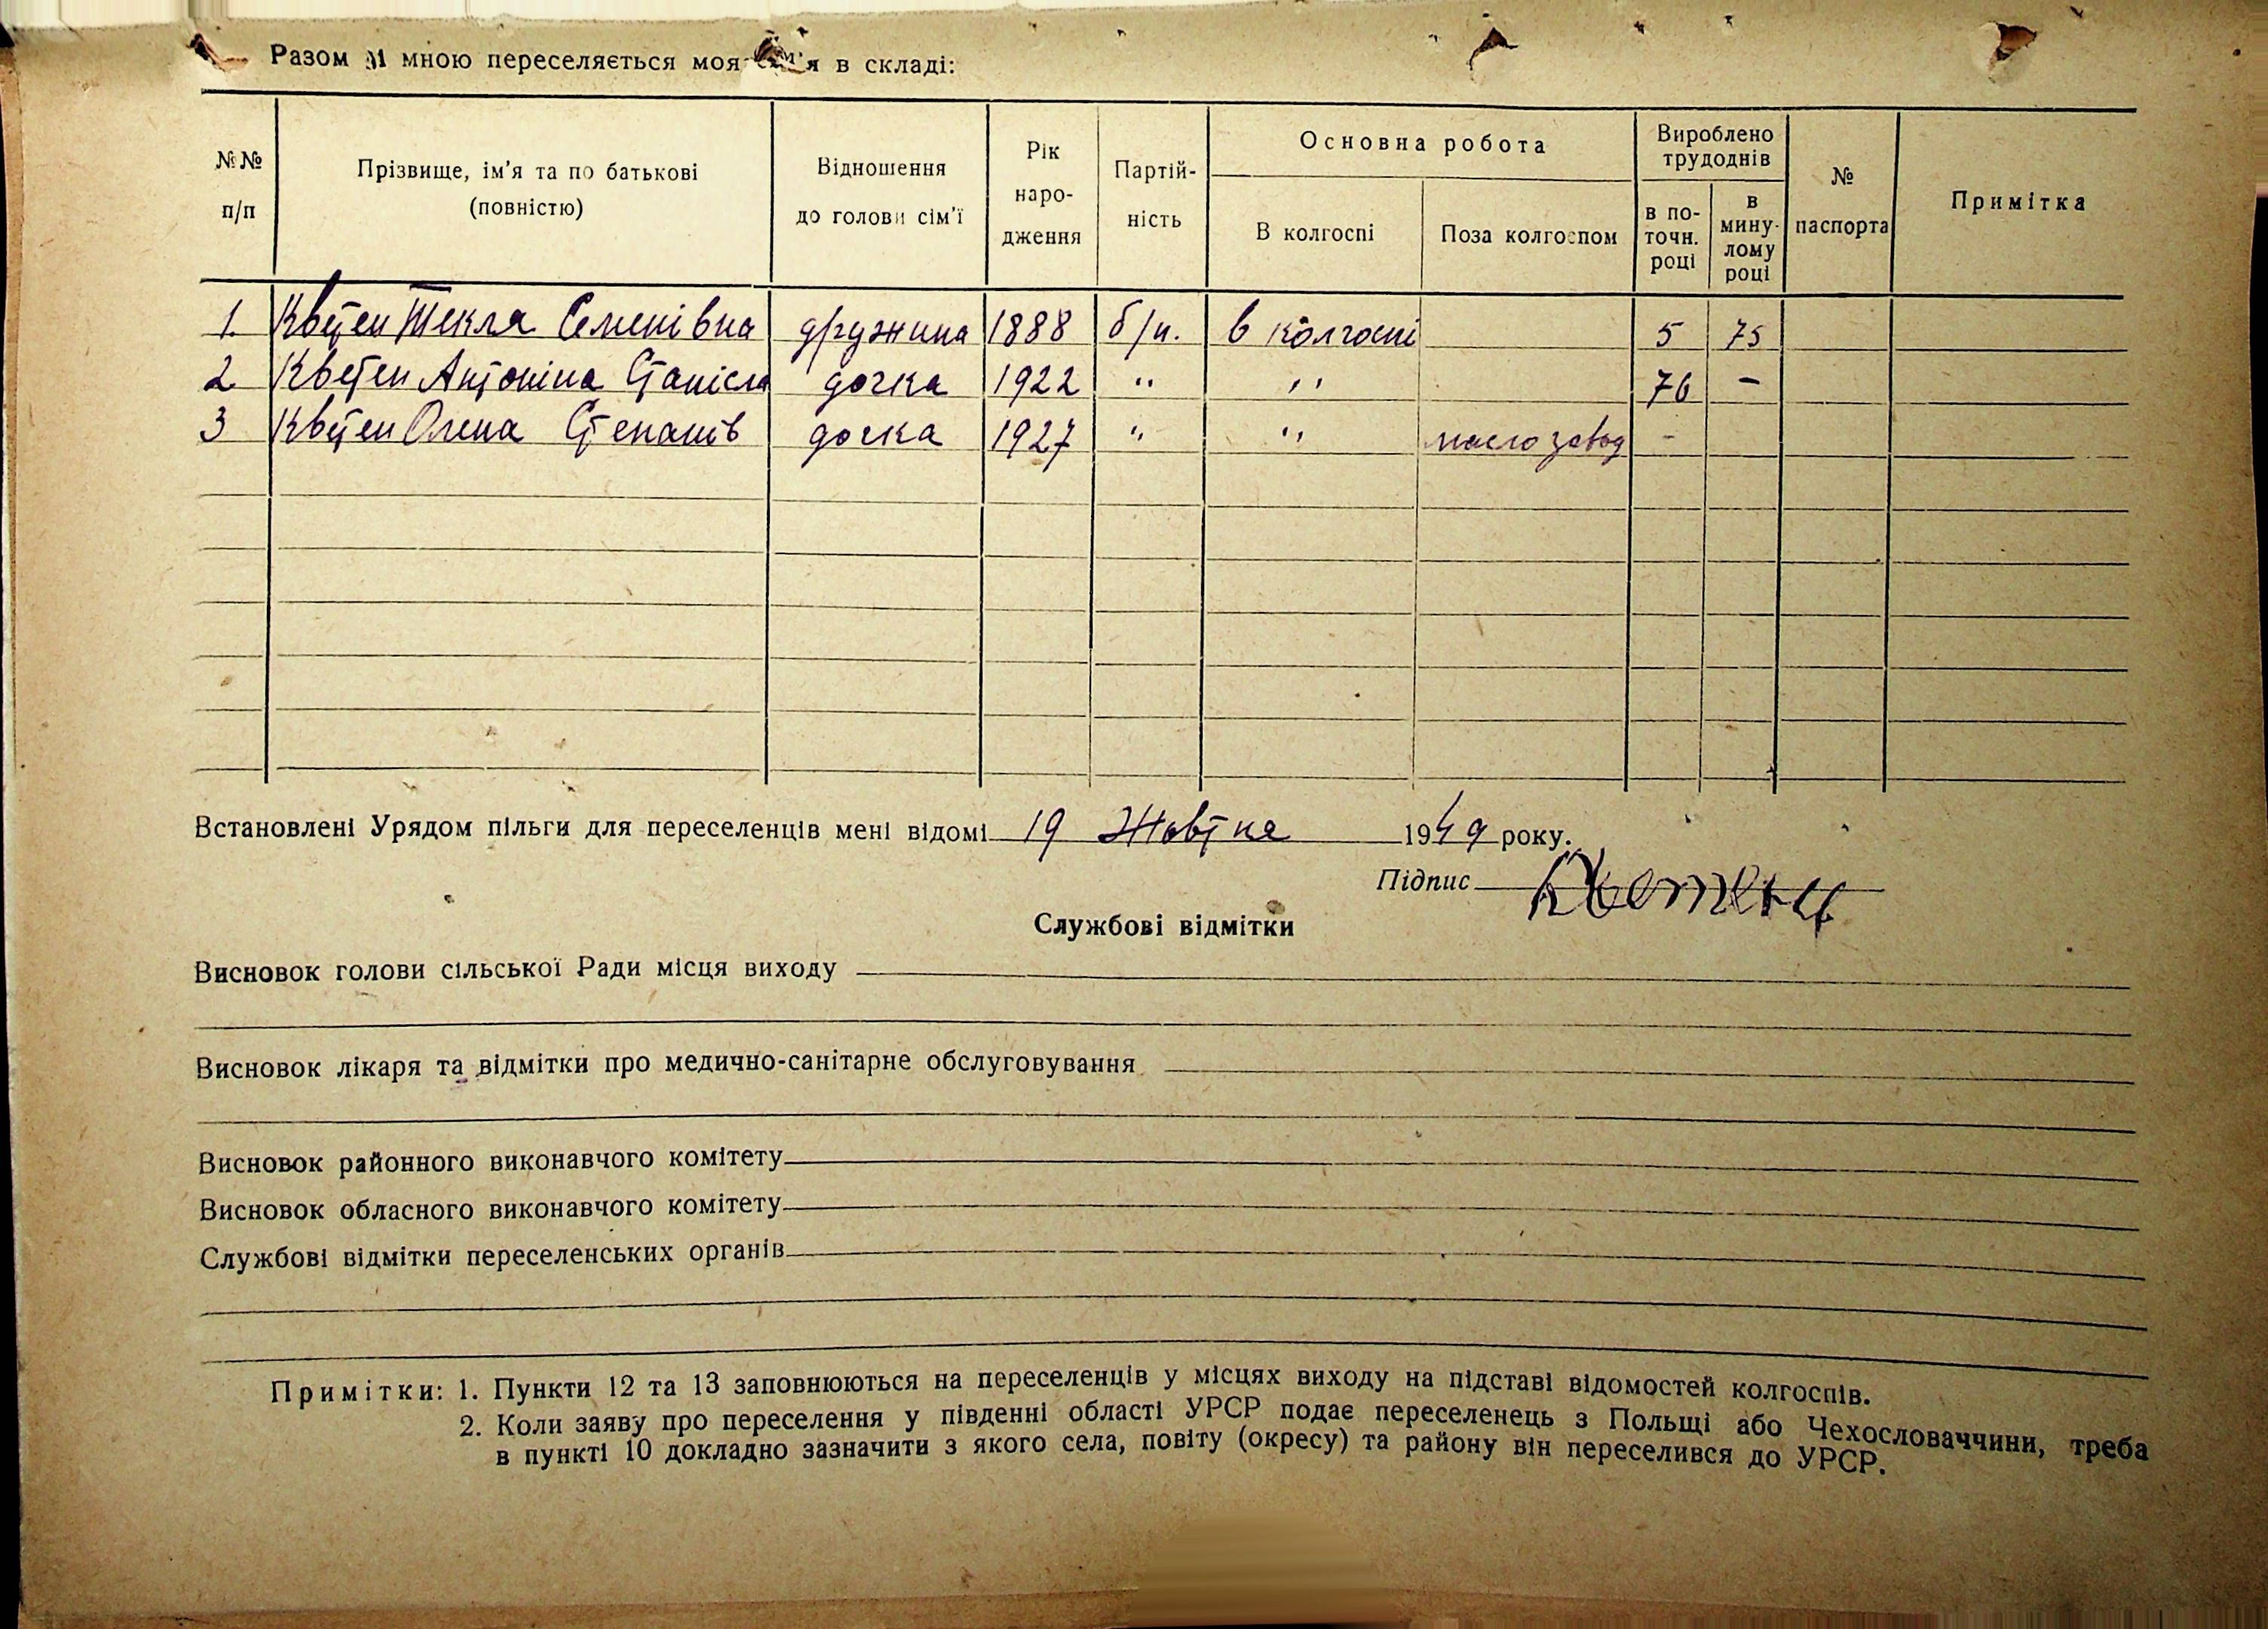 Разом зі мною переселяється моя сім'я в складі:
№№ п/п
Прізвище, ім'я та по батькові (повністю)
Відношення до голови сім'ї
Рік наро- дження
Партій- ність
Основна робота
В колгоспі
Поза колгоспом
Вироблено трудоднів
в по- точн. році
в мину- лому році
№ паспорта
Примітка
1. Квєтен Текля Семенівна дружина 1888 б/п. в колгоспі 5 75
2 Квєтен Антоніна Станісла дочка 1922 " " 76 -
3 Квєтен Олена Степанів дочка 1927 " " маслозавод -
Встановлені Урядом пільги для переселенців мені відомі 19 Жовтня 1949 року.
Підпис
Службові відмітки
Висновок голови сільської Ради місця виходу
Висновок лікаря та відмітки про медично-санітарне обслуговування
Висновок районного виконавчого комітету
Висновок обласного виконавчого комітету
Службові відмітки переселенських органів
Примітки: 1. Пункти 12 та 13 заповнюються на переселенців у місцях виходу на підставі відомостей колгоспів.
2. Коли заяву про переселення у південні області УРСР подає переселенець з Польщі або Чехословаччини, треба
в пункті 10 докладно зазначити з якого села, повіту (окресу) та району він переселився до УРСР.